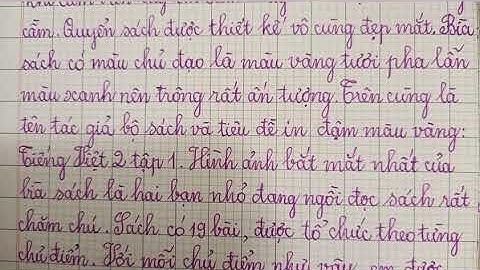 cầm. Quyển sách được thiết kế vô cùng đẹp mắt. Bìa
sách có màu chủ đạo là màu vàng tươi pha lẫn
màu xanh nên trông rất ấn tượng. Trên cùng là
tên tác giả bộ sách và tiêu đề in đậm màu vàng:
Tiếng Việt 2 tập 1. Hình ảnh bắt mắt nhất của
bìa sách là hai bạn nhỏ đang ngồi đọc sách rất
chăm chú. Sách có 19 bài, được tổ chức theo từng
chủ điểm. Với mỗi chủ điểm như vậy, em được